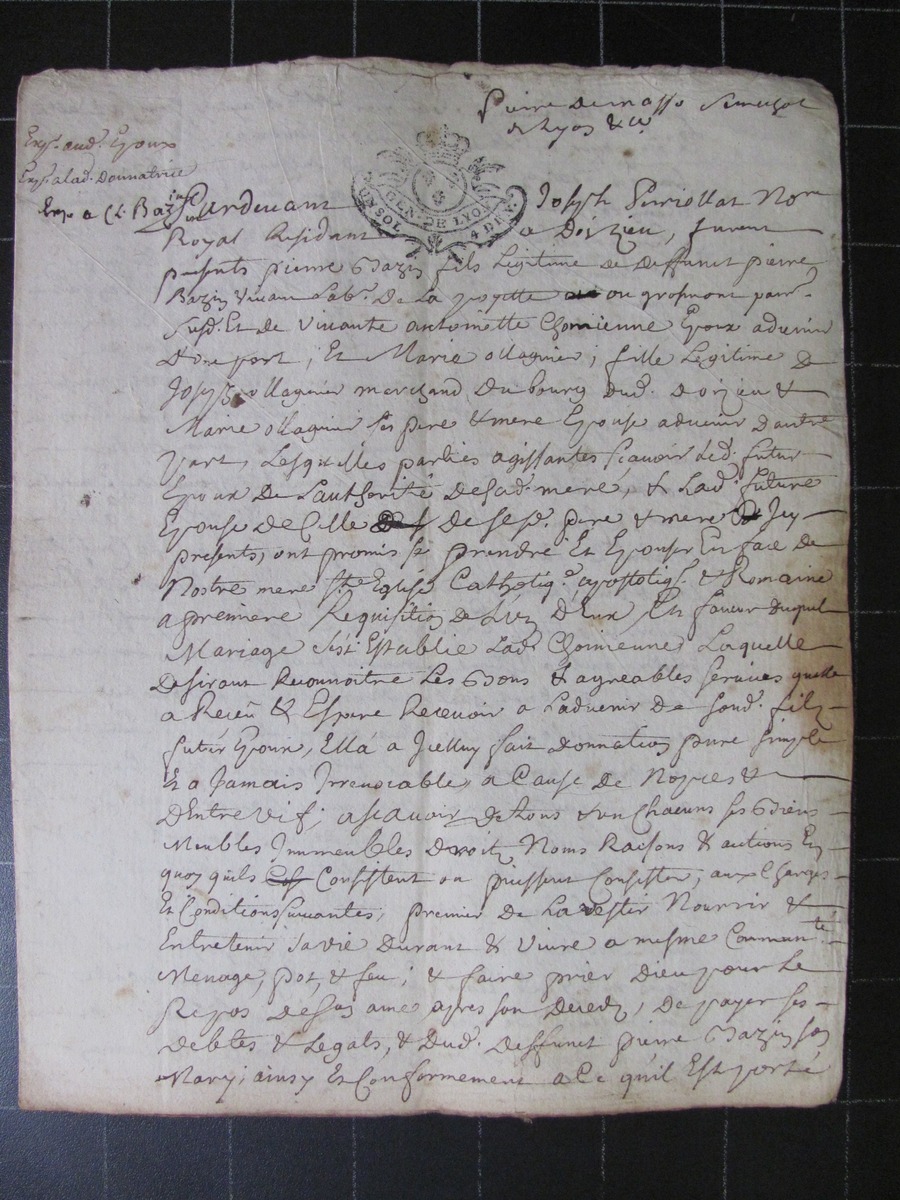 Pierre
de Lyon &c
Exp. aud. Epoux
Exp. a lad. Donnatrice
Exp a Cl. Bazin
GEN. DE LYON
UN SOL 4 DEN.
Pardevant Joseph Perriollat Nore
Royal Residant a Doizieu, furent
presents pierre Bazin fils Legitime de deffunct pierre
Bazin vivant Lab. De La ou grosmont parr.
Susd. Et de vivante antoinette Chomienne Epoux advenir
D'une part, Et Marie ollagnier, fille Legitime de
Joseph ollagnier marchand Du bourg dud. doizieu &
Marie ollagnier ses pere & mere Epouse advenir dautre
part, Lesquelles parties agissantes scavoir led. futur
Epoux De Lauthorité desad. mere, & Lad. future
Epouse de Celle de sesd. pere & mere Icy
presents, ont promis se prendre Et Epouser En face de
Nostre mere Ste Eglise Catholiq. apostoliq. & Romaine
a premiere Requisition de Lun D'Eux Et faveur duquel
Mariage s'est Establie Lad. Chomienne Laquelle
Desirant Reconnoitre Les Bons & agreables services quelle
a Receu & Espere Recevoir a Ladvenir de sond. filz
futur Epoux, Ella a Icelluy fait donnation pure simple
Et a Jamais Irrevocable a Cause de Nopces &
D'Entre vif, ascavoir de tous & un Chacuns ses Biens
Meubles Immeubles droitz Noms Raisons & actions En
quoy quils Consistent ou puissent Consister, aux Charges
Et Conditions suivantes, premier de La vestir Nourrir &
Entretenir sa vie Durant & vivre a mesme Communté
Menage, pot, & feu, & faire prier Dieu pour Le
Repos de son ame apres son decedz, De payer ses
debtes & Legats, & Dud. Deffunct pierre Bazin son
Mary, ainsy Et Conformement a Ce qu'il Est porté